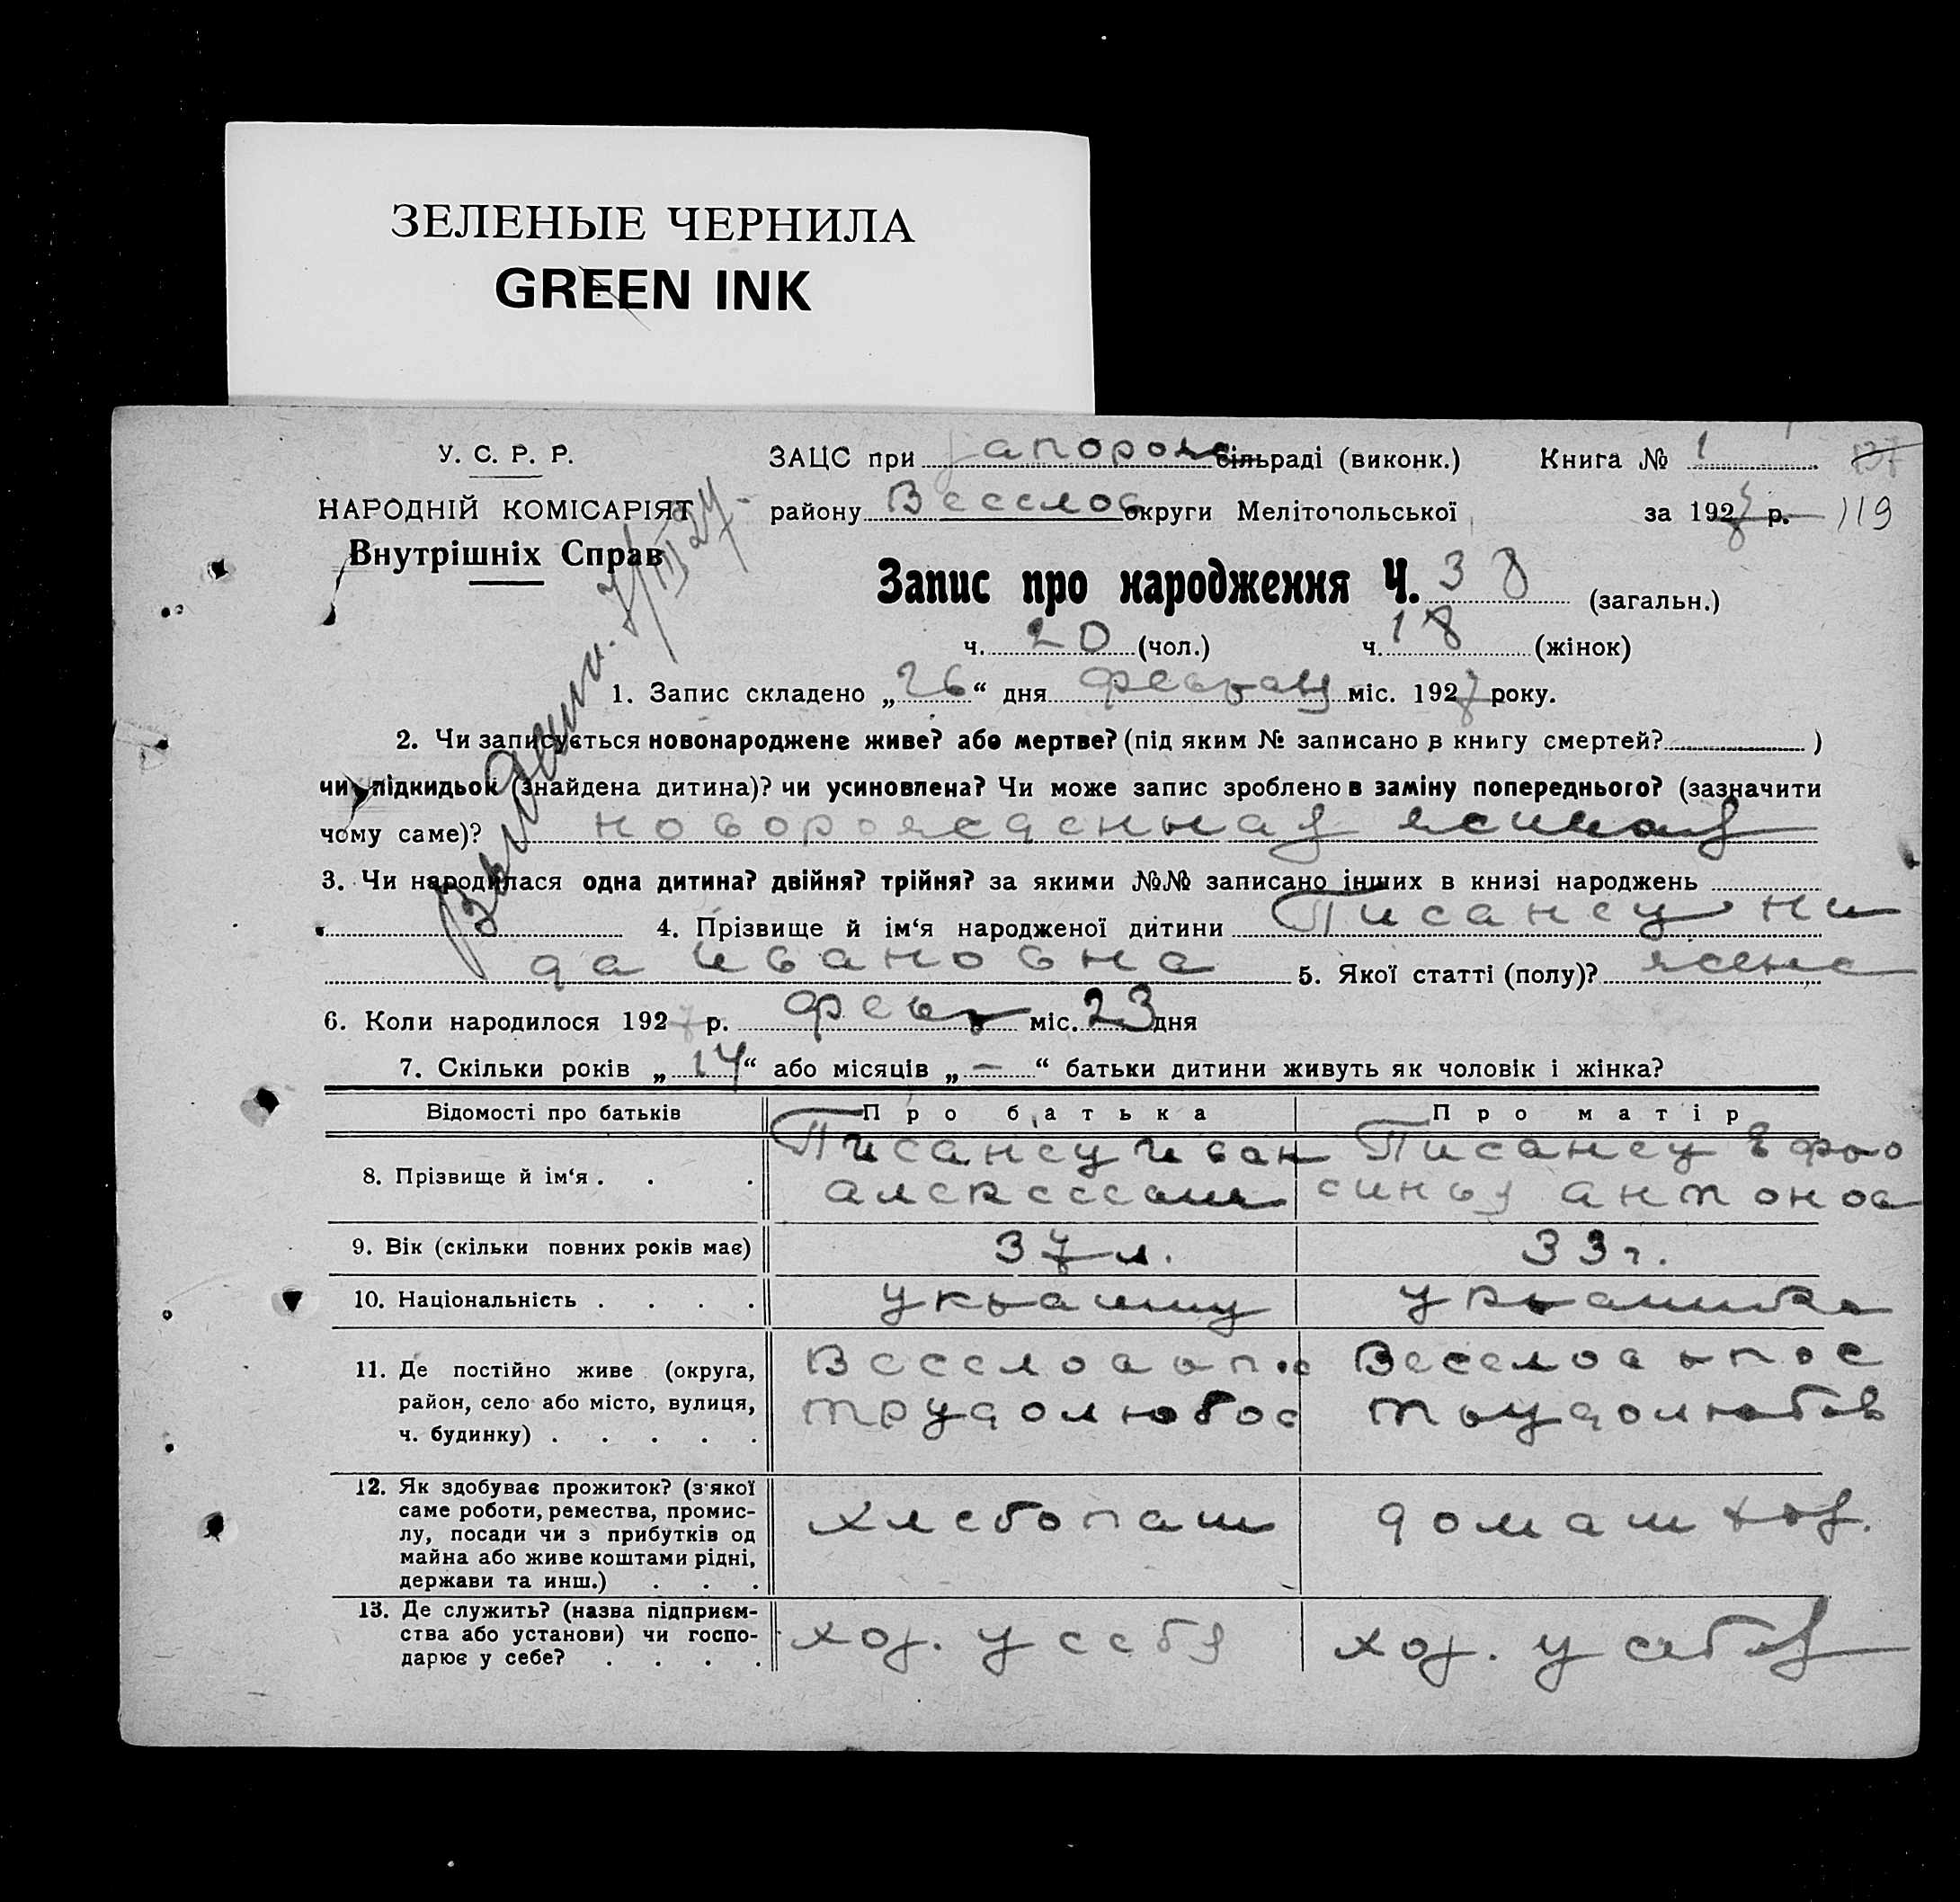 ЗЕЛЕНЫЕ ЧЕРНИЛА
GREEN INK
У. С. Р. Р.
НАРОДНІЙ КОМІСАРІЯТ
Внутрішніх Справ
ЗАЦС при Запорож сільраді (виконк.) Книга № 1
району Веселов округи Мелітопольської за 1927 р. 119
Запис про народження Ч. 38 (загальн.)
ч. 20 (чол.) ч. 18 (жінок)
1. Запис складено „26“ дня февраля міс. 1927 року.
2. Чи записується новонароджене живе? або мертве? (під яким № записано в книгу смертей? )
чи підкидьок (знайдена дитина)? чи усиновлена? Чи може запис зроблено в заміну попереднього? (зазначити
чому саме)? новорожденная живая
3. Чи народилася одна дитина? двійня? трійня? за якими №№ записано інших в книзі народжень
4. Прізвище й ім‘я народженої дитини Писанец Ни
да Ивановна 5. Якої статті (полу)? женс
6. Коли народилося 1927 р. февр міс. 23 дня
7. Скільки років „14“ або місяців „—“ батьки дитини живуть як чоловік і жінка?
Відомості про батьків Про батька Про матір
8. Прізвище й ім‘я . . . Писанец Иван Писанец Ефро
Алексеев синья Антонов
9. Вік (скільки повних років має) 37 л. 33 г.
10. Національність . . . . украинц украинка
11. Де постійно живе (округа, Веселов р п ос Веселов р п ос
район, село або місто, вулиця, Трудолюбов Трудолюбов
ч. будинку) . . . . .
12. Як здобуває прожиток? (з якої
саме роботи, ремества, промис- хлебопаш домаш хоз.
лу, посади чи з прибутків од
майна або живе коштами рідні,
держави та инш.) . . .
13. Де служить? (назва підприєм-
ства або установи) чи госпо- хоз. у себя хоз. у себя
дарює у себе? . . . .